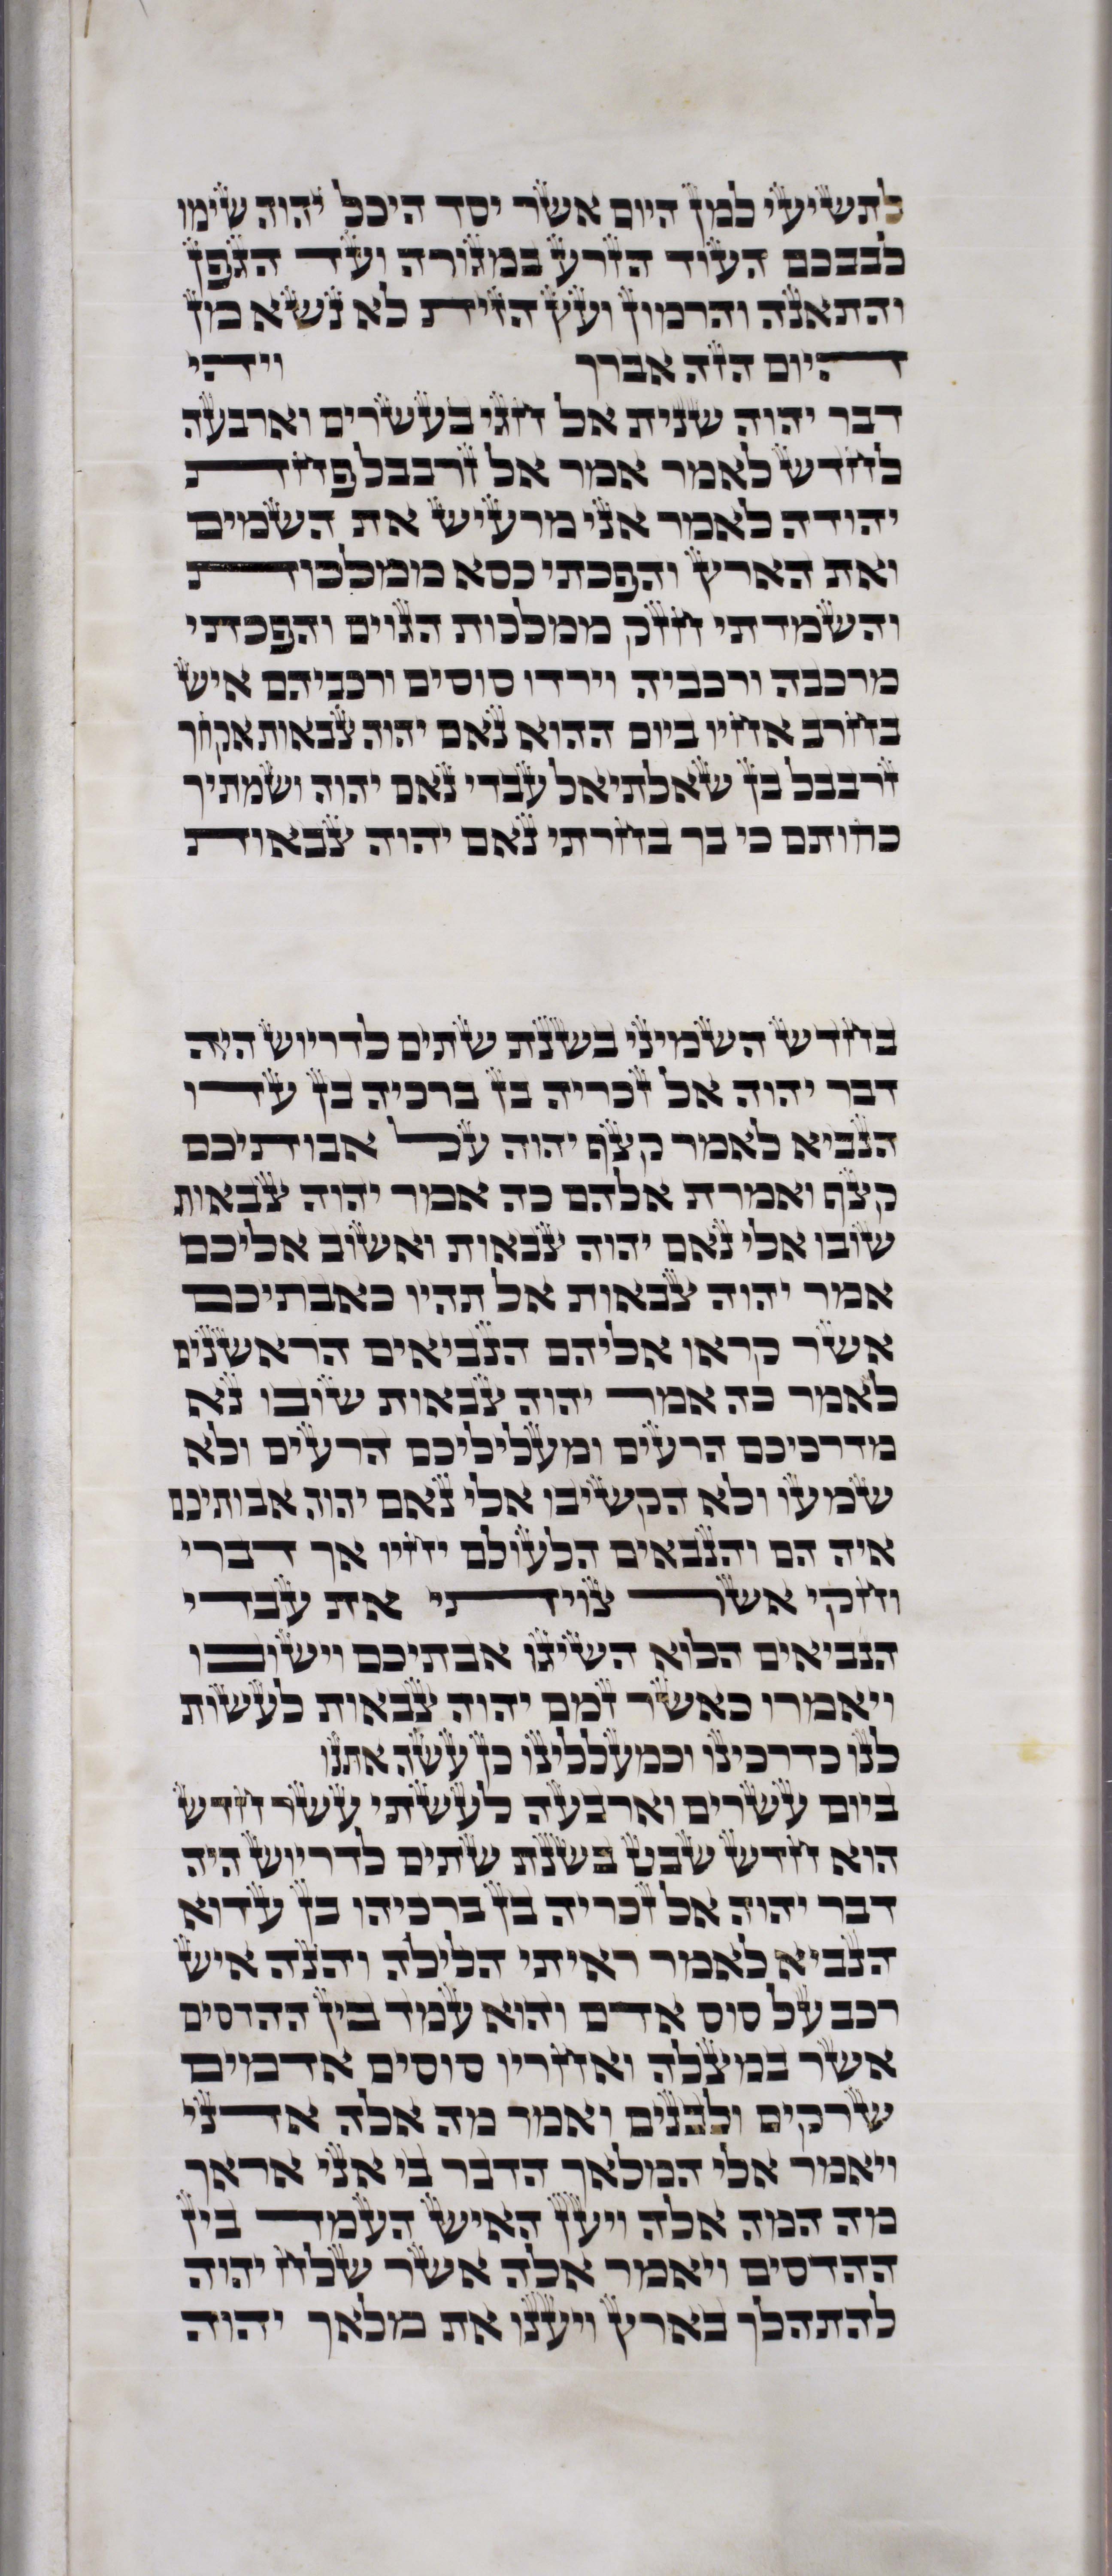 לתשיעי למן היום אשר יסד היכל יהוה שימו
לבבכם העוד הזרע במגורה ועד הגפן
והתאנה והרמון ועץ הזית לא נשא מן
היום הזה אברך ויהי
דבר יהוה שנית אל חגי בעשרים וארבעה
לחדש לאמר אמר אל זרבבל פחת
יהודה לאמר אני מרעיש את השמים
ואת הארץ והפכתי כסא ממלכות
והשמדתי חזק ממלכות הגוים והפכתי
מרכבה ורכביה וירדו סוסים ורכביהם איש
בחרב אחיו ביום ההוא נאם יהוה צבאות אקחך
זרבבל בן שאלתיאל עבדי נאם יהוה ושמתיך
כחותם כי בך בחרתי נאם יהוה צבאות
בחדש השמיני בשנת שתים לדריוש היה
דבר יהוה אל זכריה בן ברכיה בן עדו
הנביא לאמר קצף יהוה על אבותיכם
קצף ואמרת אלהם כה אמר יהוה צבאות
שובו אלי נאם יהוה צבאות ואשוב אליכם
אמר יהוה צבאות אל תהיו כאבתיכם
אשר קראו אליהם הנביאים הראשנים
לאמר כה אמר יהוה צבאות שובו נא
מדרכיכם הרעים ומעליליכם הרעים ולא
שמעו ולא הקשיבו אלי נאם יהוה אבותיכם
איה הם והנבאים הלעולם יחיו אך דברי
וחקי אשר צויתי את עבדי
הנביאים הלוא השיגו אבתיכם וישובו
ויאמרו כאשר זמם יהוה צבאות לעשות
לנו כדרכינו וכמעללינו כן עשה אתנו
ביום עשרים וארבעה לעשתי עשר חדש
הוא חדש שבט בשנת שתים לדריוש היה
דבר יהוה אל זכריה בן ברכיהו בן עדוא
הנביא לאמר ראיתי הלילה והנה איש
רכב על סוס אדם והוא עמד בין ההדסים
אשר במצלה ואחריו סוסים אדמים
שרקים ולבנים ואמר מה אלה אדני
ויאמר אלי המלאך הדבר בי אני אראך
מה המה אלה ויען האיש העמד בין
ההדסים ויאמר אלה אשר שלח יהוה
להתהלך בארץ ויענו את מלאך יהוה